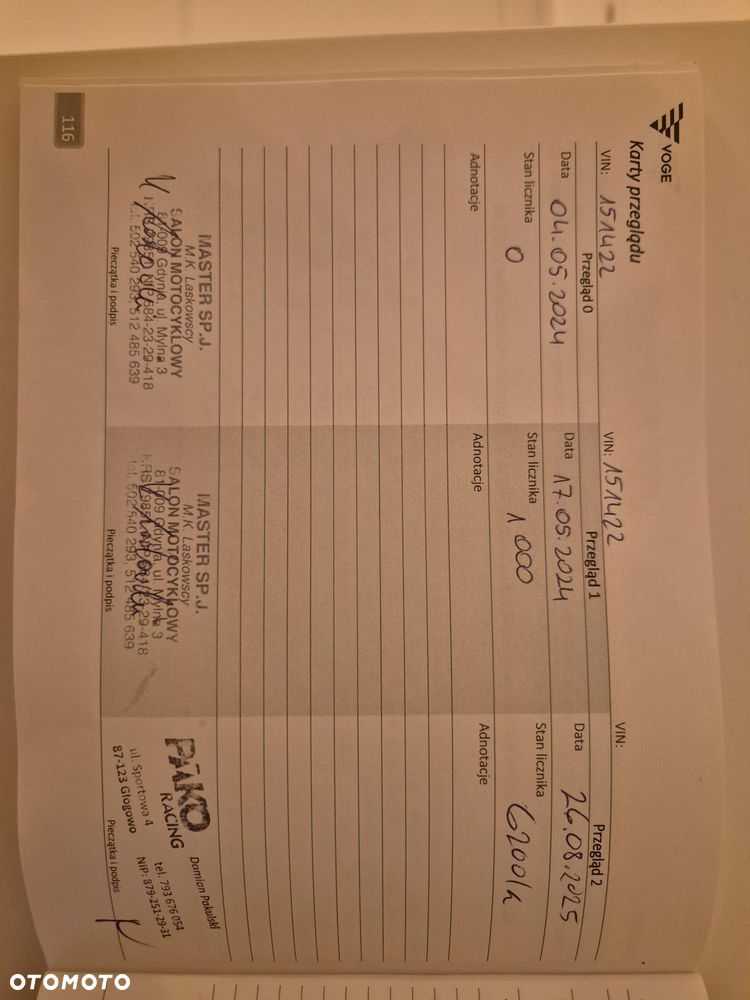 VOGE
Karty przeglądu
Przegląd 0
VIN: 151422
Data 04.05.2024
Stan licznika 0
Adnotacje
MASTER SP.J.
M.K. Laskowscy
SALON MOTOCYKLOWY
81-009 Gdynia, ul. Mylna 3
NIP 584-23-29-418
tel. 502 540 293, 512 485 639
Pieczątka i podpis
Przegląd 1
VIN: 151422
Data 17.05.2024
Stan licznika 1 000
Adnotacje
MASTER SP.J.
M.K. Laskowscy
SALON MOTOCYKLOWY
81-009 Gdynia, ul. Mylna 3
23-29-418
tel. 502 540 293, 512 485 639
Pieczątka i podpis
Przegląd 2
VIN:
Data 26.08.2025
Stan licznika 6200
Adnotacje
PAKO
RACING
ul. Sportowa 4
87-123 Głogowo
Damian Pakulski
tel. 793 676 054
NIP: 879-251-29-31
Pieczątka i podpis
116
OTOMOTO